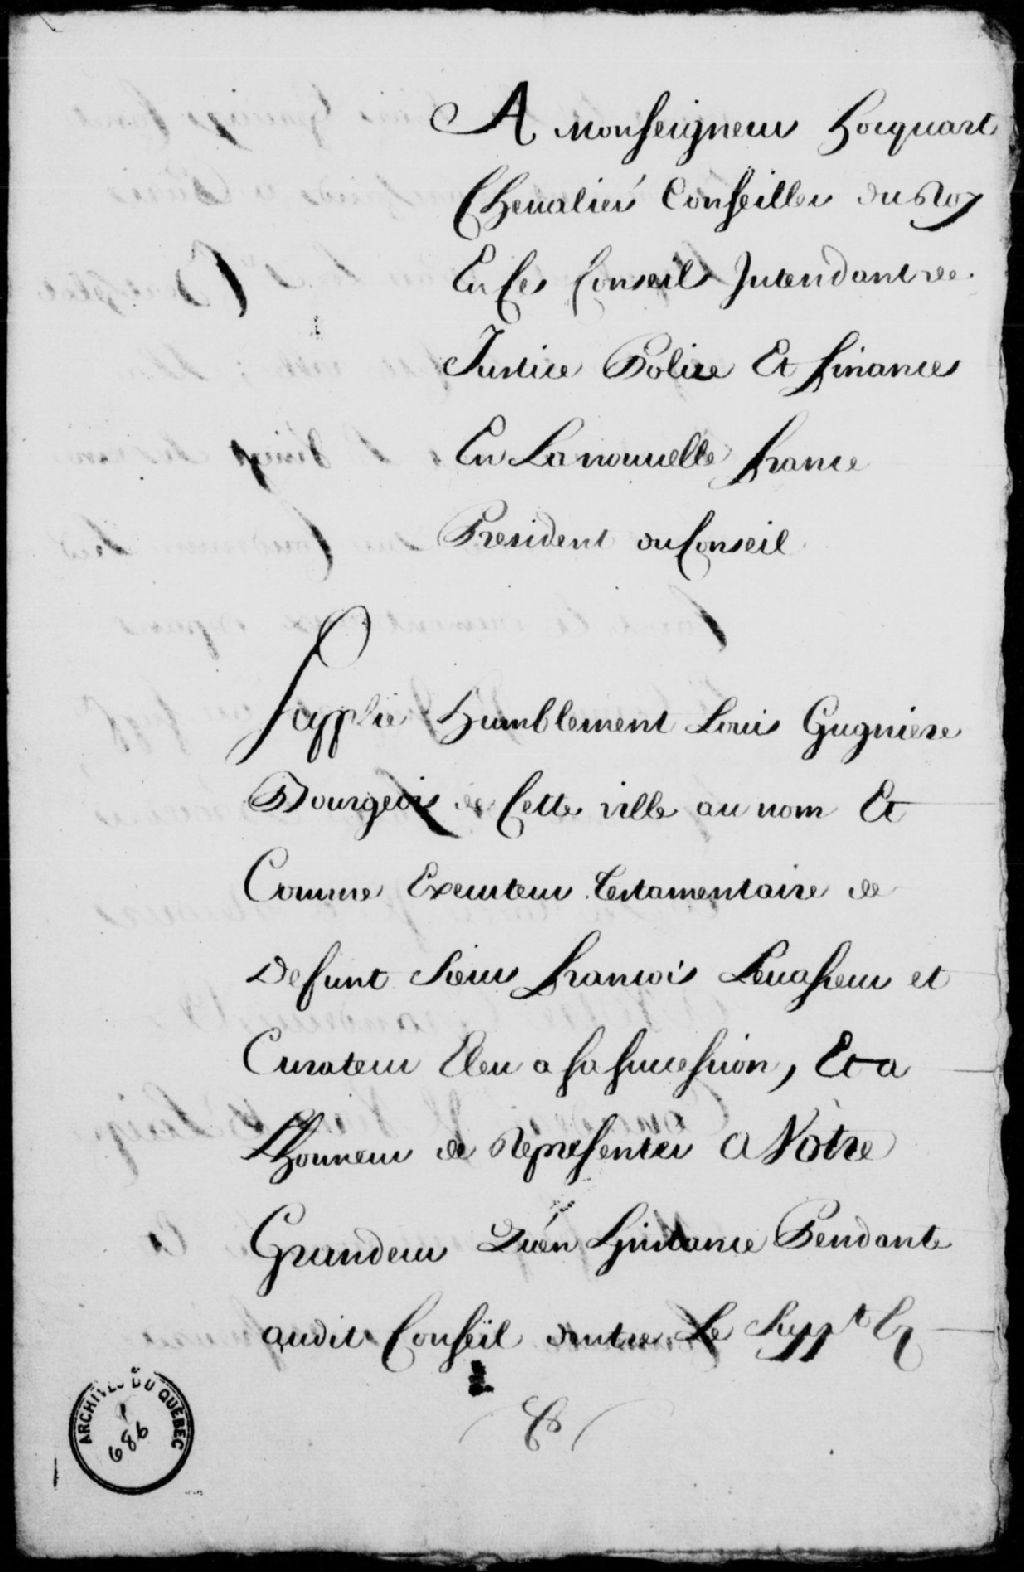 A Monseigneur hocquart
Chevalier Conseiller du Roy
En Ses Conseil Intendant de
Justice Police Et finances
En La nouuelle france
President du Conseil
Supplie humblement Louis Gugniere
Bourgeois de Cette ville au nom Et
Comme Executeur testamentaire de
Defunt sieur francois Leuasseur et
Curateur Eleu a sa succession, Et a
Lhonneur de Representer a Votre
Grandeur Quén Linstance Pendante
audit Conseil dentre Le Supp.t
ARCHIVES DU QUÉBEC
986